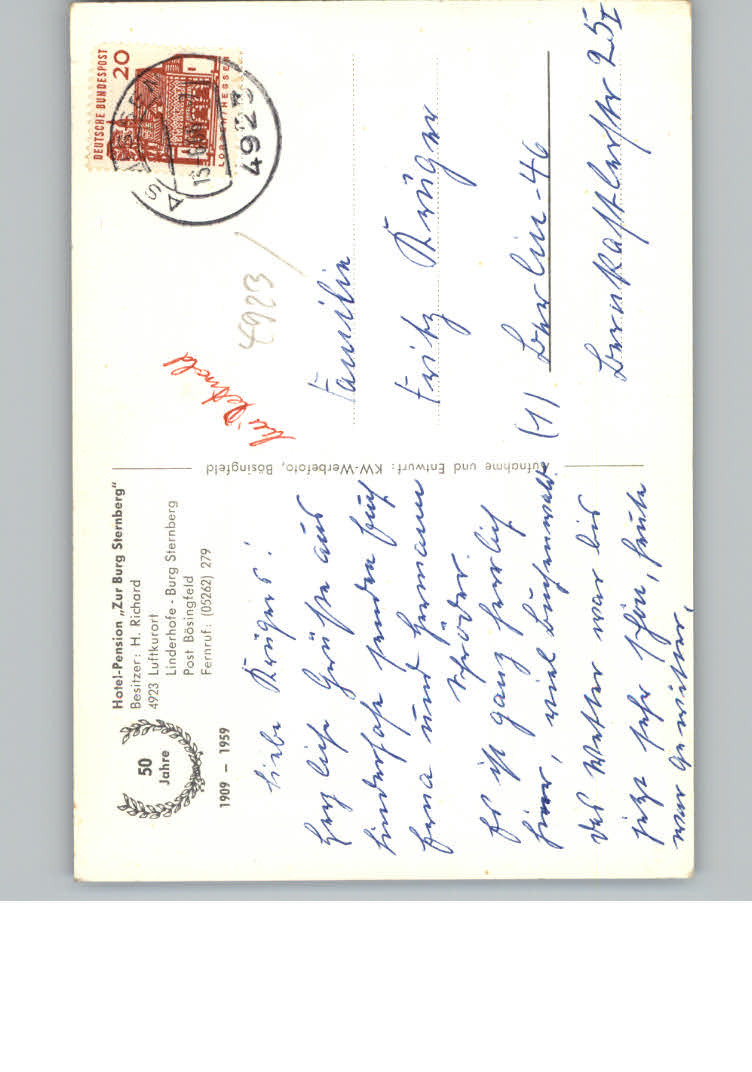 50
Jahre
1909 – 1959
Hotel-Pension „Zur Burg Sternberg"
Besitzer: H. Richard
4923 Luftkurort
Linderhofe - Burg Sternberg
Post Bösingfeld
Fernruf: (05262) 279
Liebe Krügers!
Herzliche Grüße aus
Linderhofe senden Euch
Erna und Hermann
Schröder.
Es ist ganz herrlich
hier, viel Buchenwald
das Wetter war bis
jetzt sehr schön, heute
war Gewitter.
Aufnahme und Entwurf: KW-Werbefoto, Bösingfeld
DEUTSCHE BUNDESPOST
20
LORSCH/HESSEN
4923
4923
Familie
Fritz Krüger
(1) Berlin-46
Bernkastlerstr 25 I